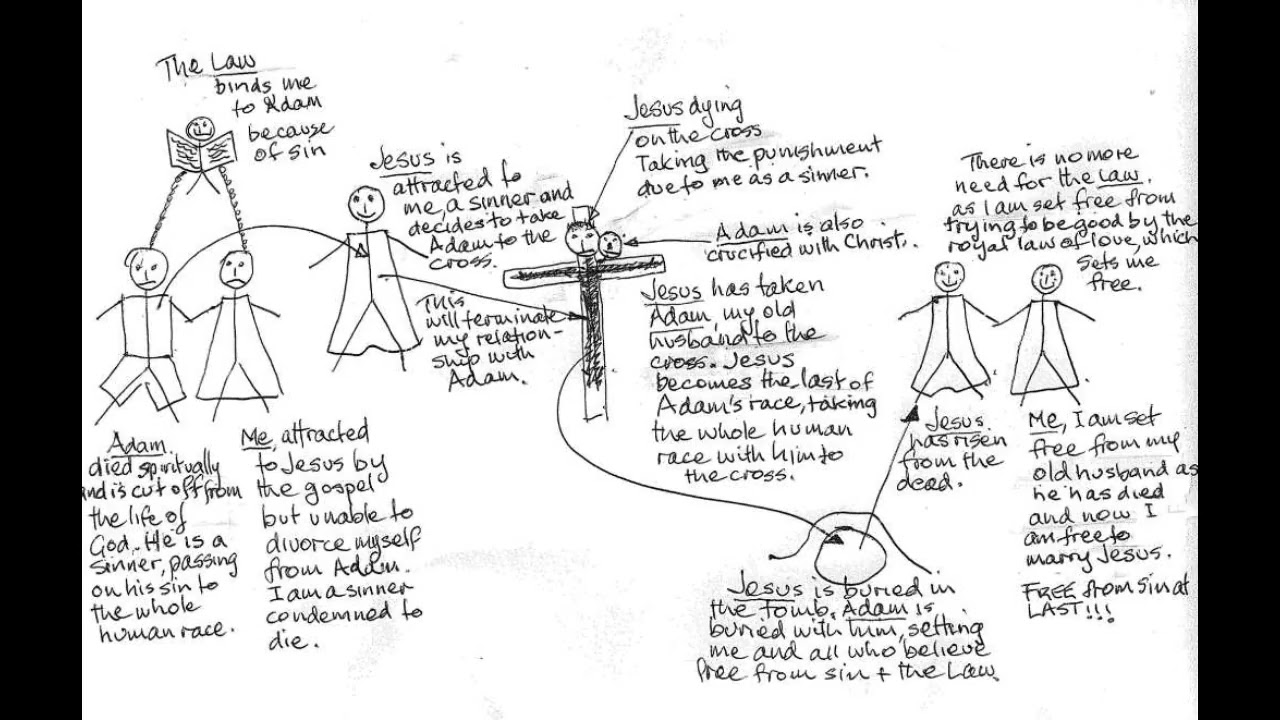 The Law
binds me
to Adam
because
of sin
Jesus is
attracted to
me, a sinner and
decides to take
Adam to the
cross.
This
will terminate
my relation-
ship with
Adam.
Jesus dying
on the cross
Taking the punishment
due to me as a sinner.
Adam is also
crucified with Christ.
Jesus has taken
Adam, my old
husband to the
cross. Jesus
becomes the last of
Adam's race, taking
the whole human
race with him to
the cross.
There is no more
need for the law.
as I am set free from
trying to be good by the
royal law of love, which
sets me
free.
Adam
died spiritually
and is cut off from
the life of
God. He is a
sinner, passing
on his sin to
the whole
human race.
Me, attracted
to Jesus by
the gospel
but unable to
divorce myself
from Adam.
I am a sinner
condemned to
die.
Jesus is buried in
the tomb. Adam is
buried with him, setting
me and all who believe
free from sin + the Law.
Jesus
has risen
from the
dead.
Me, I am set
free from my
old husband as
he has died
and now I
am free to
marry Jesus.
FREE from sin at
LAST!!!